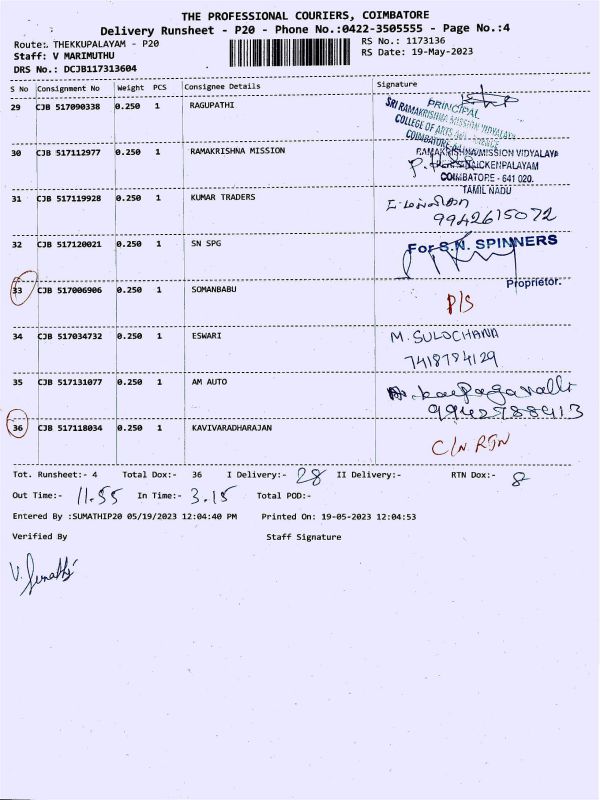 THE PROFESSIONAL COURIERS, COIMBATORE
Delivery Runsheet - P20 - Phone No.:0422-3505555 - Page No.:4
Route:. THEKKUPALAYAM - P20 RS No.: 1173136
Staff: V MARIMUTHU RS Date: 19-May-2023
DRS No.: DCJB117313604
S No Consignment No Weight PCS Consignee Details Signature
29 CJB 517090338 0.250 1 RAGUPATHI
PRINCIPAL
SRI RAMAKRISHNA MISSION VIDYALAYA
COLLEGE OF ARTS AND SCIENCE
COIMBATORE
30 CJB 517112977 0.250 1 RAMAKRISHNA MISSION
RAMAKRISHNA MISSION VIDYALAYA
COIMBATORE - 641 020.
TAMIL NADU
31 CJB 517119928 0.250 1 KUMAR TRADERS
9942615072
32 CJB 517120021 0.250 1 SN SPG
For S.N. SPINNERS
Proprietor.
33 CJB 517006906 0.250 1 SOMANBABU P/S
34 CJB 517034732 0.250 1 ESWARI M. SULOCHANA
7418784129
35 CJB 517131077 0.250 1 AM AUTO
9942588413
36 CJB 517118034 0.250 1 KAVIVARADHARAJAN C/N RTN
Tot. Runsheet:- 4 Total Dox:- 36 I Delivery:- 28 II Delivery:- RTN Dox:- 8
Out Time:- 11.55 In Time:- 3.15 Total POD:-
Entered By :SUMATHIP20 05/19/2023 12:04:40 PM Printed On: 19-05-2023 12:04:53
Verified By Staff Signature
V. Sumathi